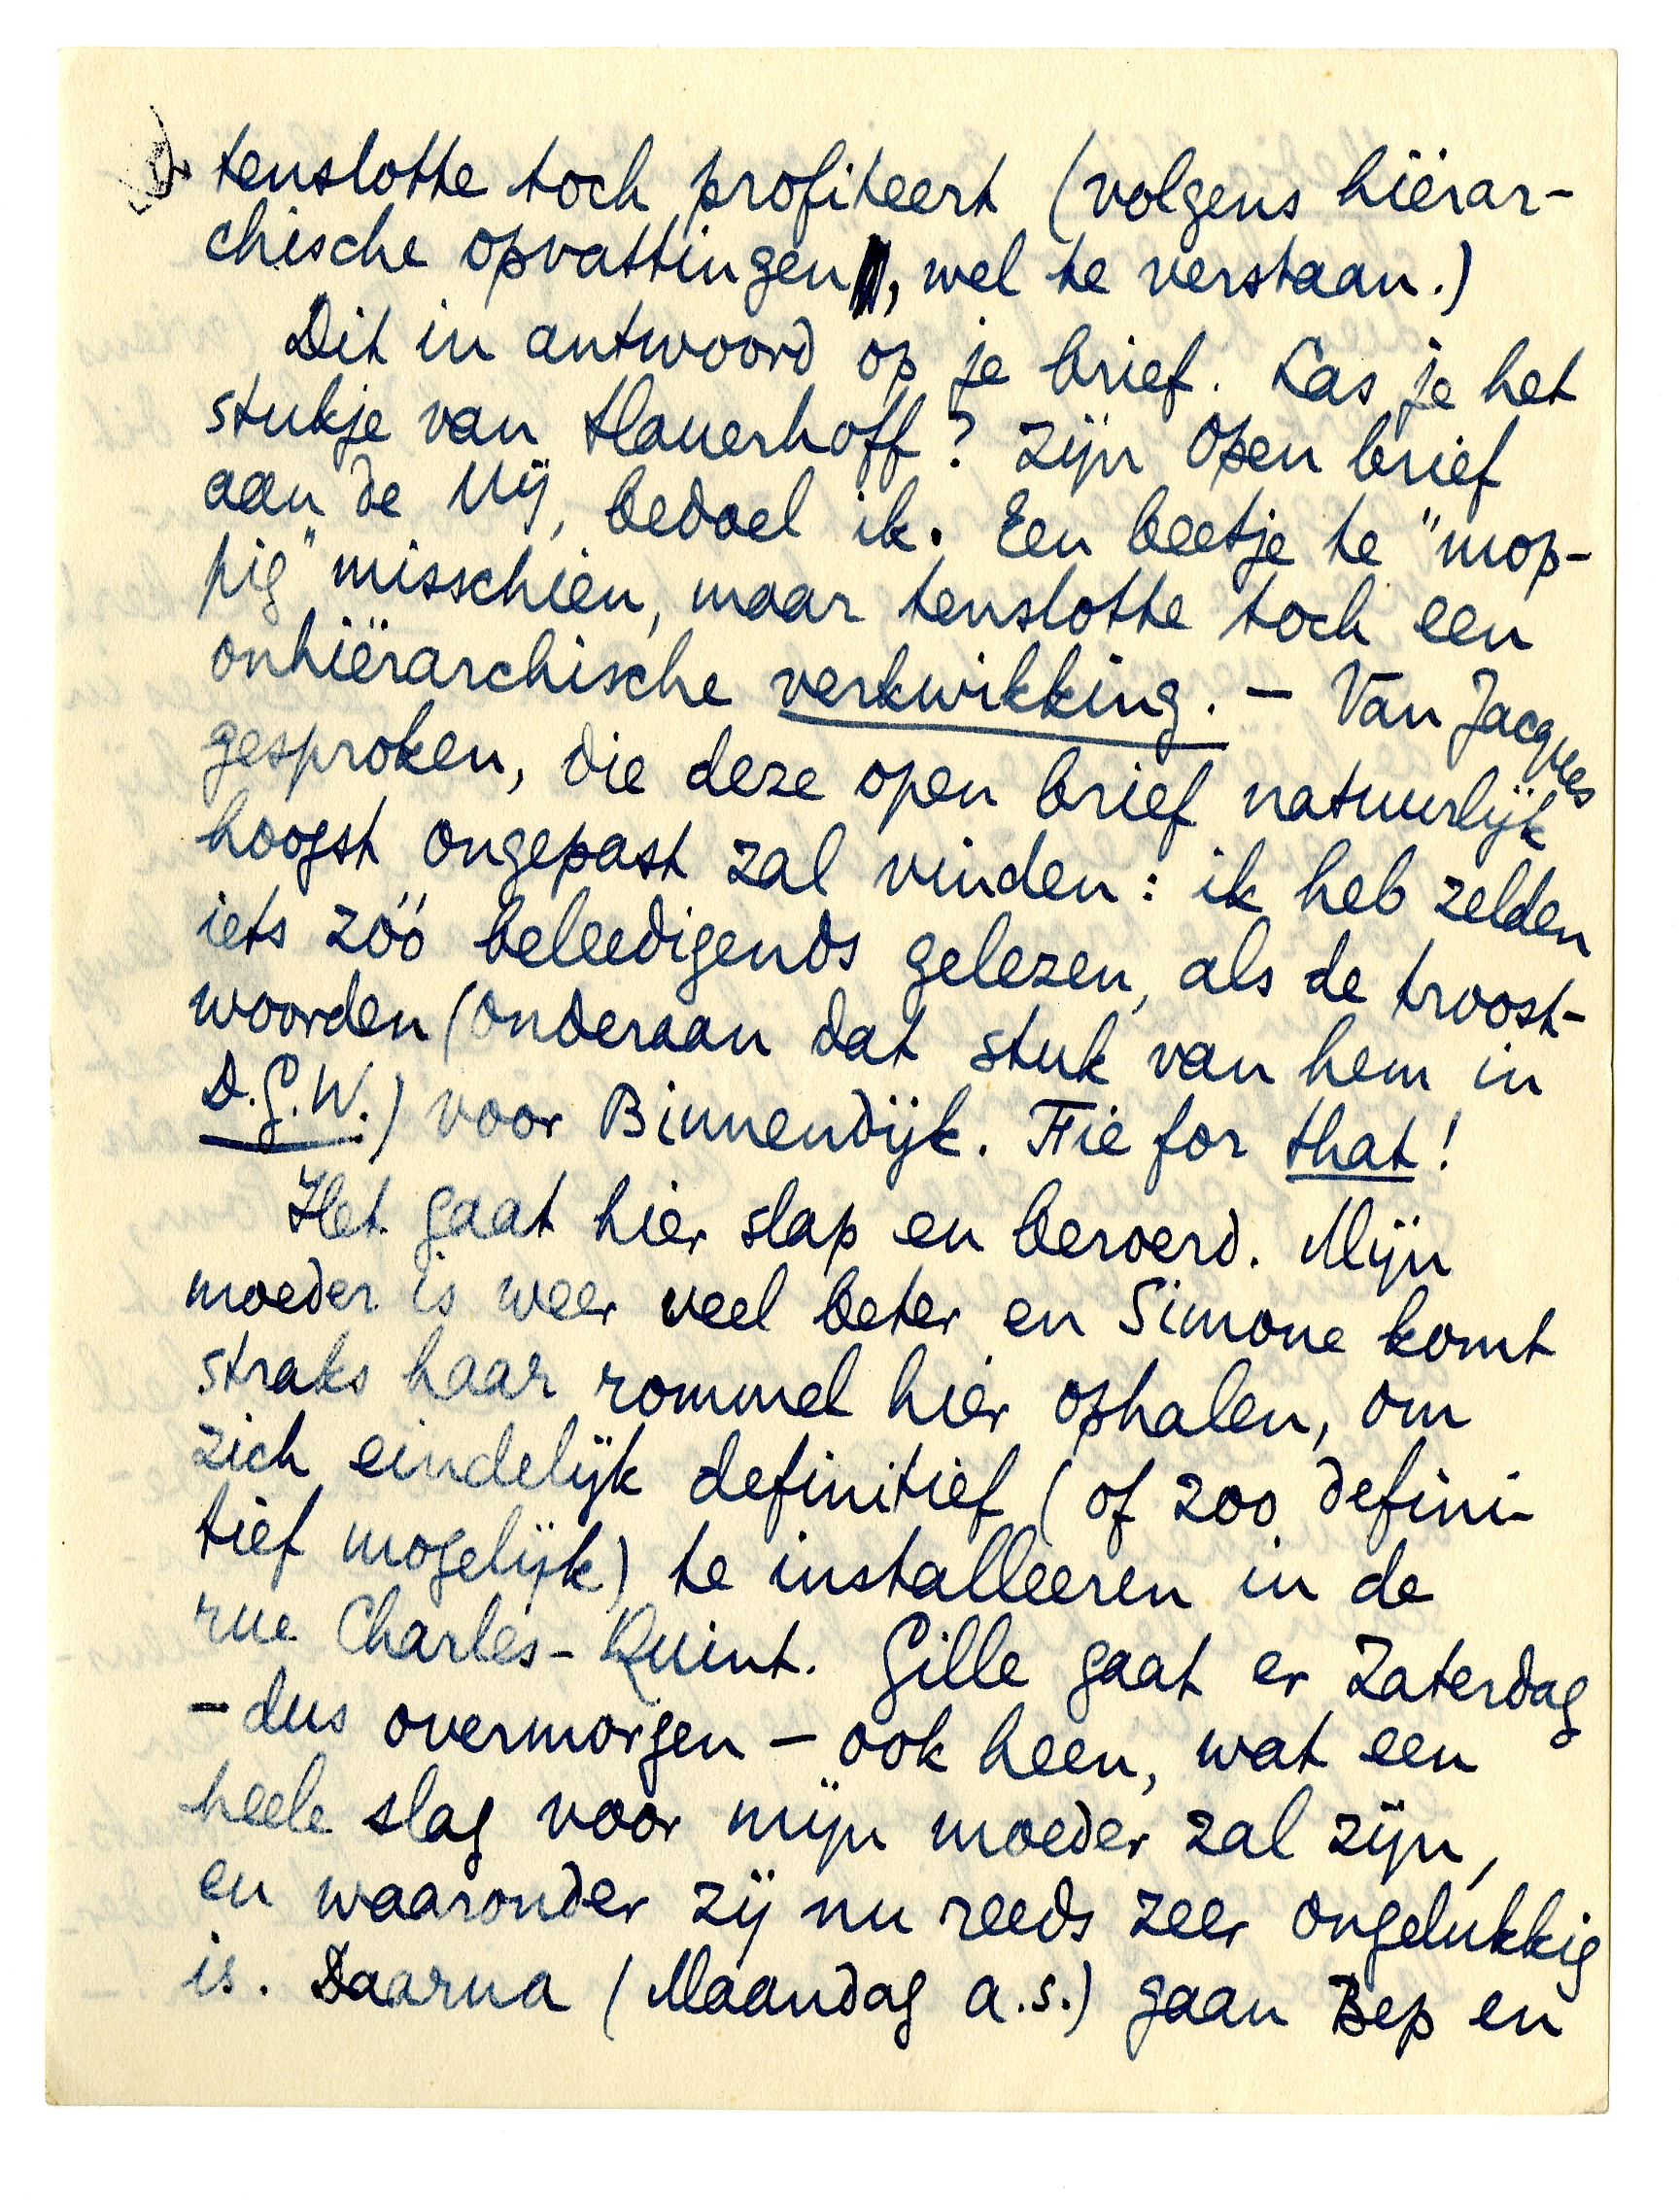 tenslotte toch profiteert (volgens hiërar-
chische opvattingen, wel te verstaan.)
Dit in antwoord op je brief. Las je het
stukje van Slauerhoff? Zijn Open brief
aan de Mij, bedoel ik. Een beetje te "mop-
pig" misschien, maar tenslotte toch een
onhiërarchische verkwikking. – Van Jacques
gesproken, die deze open brief natuurlijk
hoogst ongepast zal vinden: ik heb zelden
iets zóó beleedigends gelezen, als de troost-
woorden (onderaan dat stuk van hem in
D.G.W.) voor Binnendijk. Fie for that!
Het gaat hier slap en beroerd. Mijn
moeder is weer veel beter en Simone komt
straks haar rommel hier ophalen, om
zich eindelijk definitief (of zoo defini-
tief mogelijk) te installeeren in de
rue Charles-Quint. Gille gaat er Zaterdag
– dus overmorgen – ook heen, wat een
heele slag voor mijn moeder zal zijn,
en waaronder zij nu reeds zeer ongelukkig
is. Daarna (Maandag a.s.) gaan Bep en